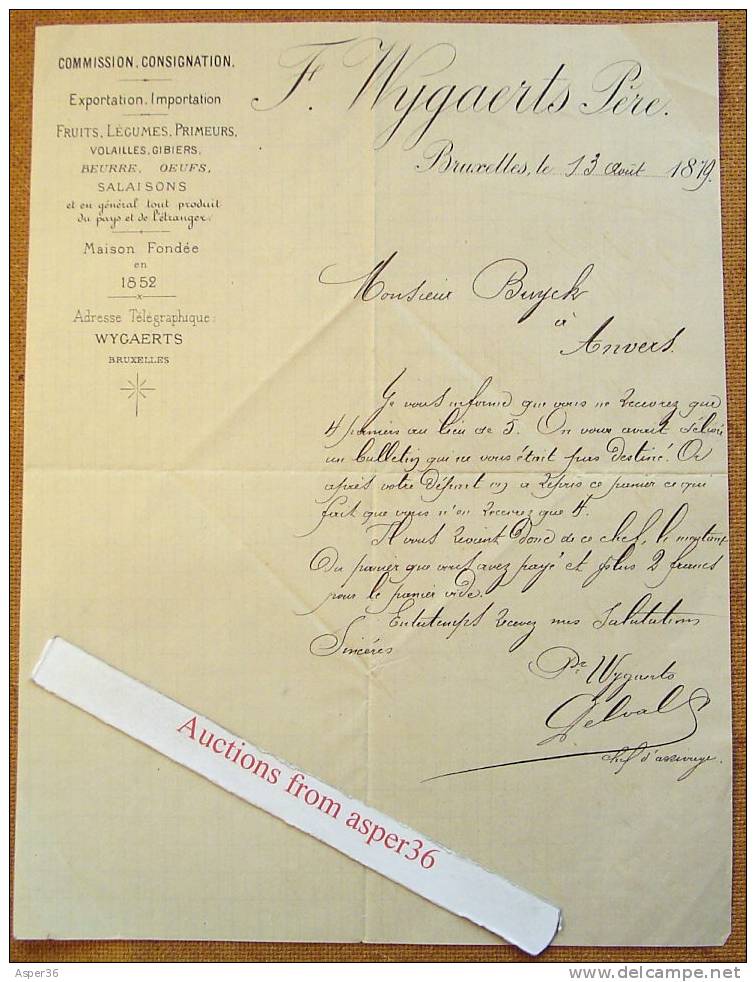 COMMISSION, CONSIGNATION.
Exportation, Importation
FRUITS, LÉGUMES, PRIMEURS,
VOLAILLES, GIBIERS,
BEURRE, OEUFS,
SALAISONS
et en général tout produit
du pays et de l'étranger.
Maison Fondée
en
1852
Adresse Télégraphique:
WYGAERTS
BRUXELLES
F. Wygaerts Père.
Bruxelles, le 13 août 1879.
Monsieur Buyck
à
Anvers.
Je vous informe que vous ne recevrez que
4 paniers au lieu de 5. On vous avait délivré
un bulletin qui ne vous était pas destiné. Or
après votre départ on a repris ce panier ce qui
fait que vous n'en recevrez que 4.
Il vous revient donc de ce chef, le montant
du panier que vous avez payé et plus 2 francs
pour le panier vide.
Entretemps recevez mes salutations
Sincères
Pr Wygaerts
Delval
chef d'arrivage.
Auctions from asper36
Asper36
www.delcampe.net